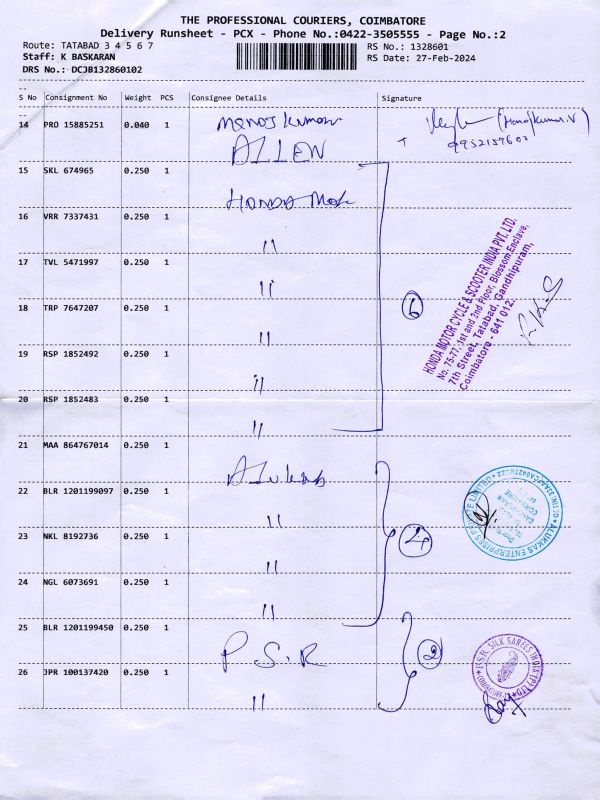 THE PROFESSIONAL COURIERS, COIMBATORE
Delivery Runsheet - PCX - Phone No.:0422-3505555 - Page No.:2
Route: TATABAD 3 4 5 6 7
RS No.: 1328601
Staff: K BASKARAN
RS Date: 27-Feb-2024
DRS No.: DCJB132860102
S No Consignment No Weight PCS Consignee Details Signature
14 PRO 15885251 0.040 1 Manoj Kumar
(Manojkumar.V)
ALLEN
15 SKL 674965 0.250 1 HONDA
16 VRR 7337431 0.250 1 "
17 TVL 5471997 0.250 1 "
18 TRP 7647207 0.250 1 "
6
19 RSP 1852492 0.250 1 "
20 RSP 1852483 0.250 1 "
HONDA MOTOR CYCLE & SCOOTER INDIA PVT. LTD.
No. 75-77, 1st and 2nd Floor, Blossom Enclave,
7th Street, Tatabad, Gandhipuram,
Coimbatore - 641 012.
21 MAA 864767014 0.250 1
22 BLR 1201199097 0.250 1 "
23 NKL 8192736 0.250 1 "
4
24 NGL 6073691 0.250 1 "
ALUKKAS ENTERPRISES PRIVATE LIMITED
25 BLR 1201199450 0.250 1 P.S.R
2
26 JPR 100137420 0.250 1 "
P.S.R. SILK SAREES INDIA (P) LTD
COIMBATORE